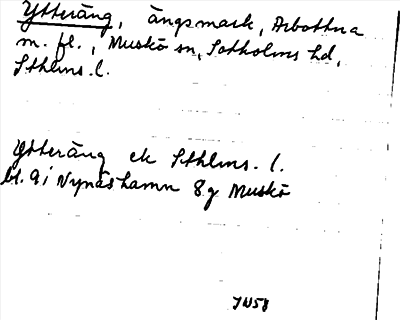 Ytteräng, ängsmark, Arbottna
m. fl., Muskö sn, Sotholms hd,
Sthlms. l.
Ytteräng ek Sthlms. l.
bl. 9 i Nynäshamn 8g Muskö
JW58